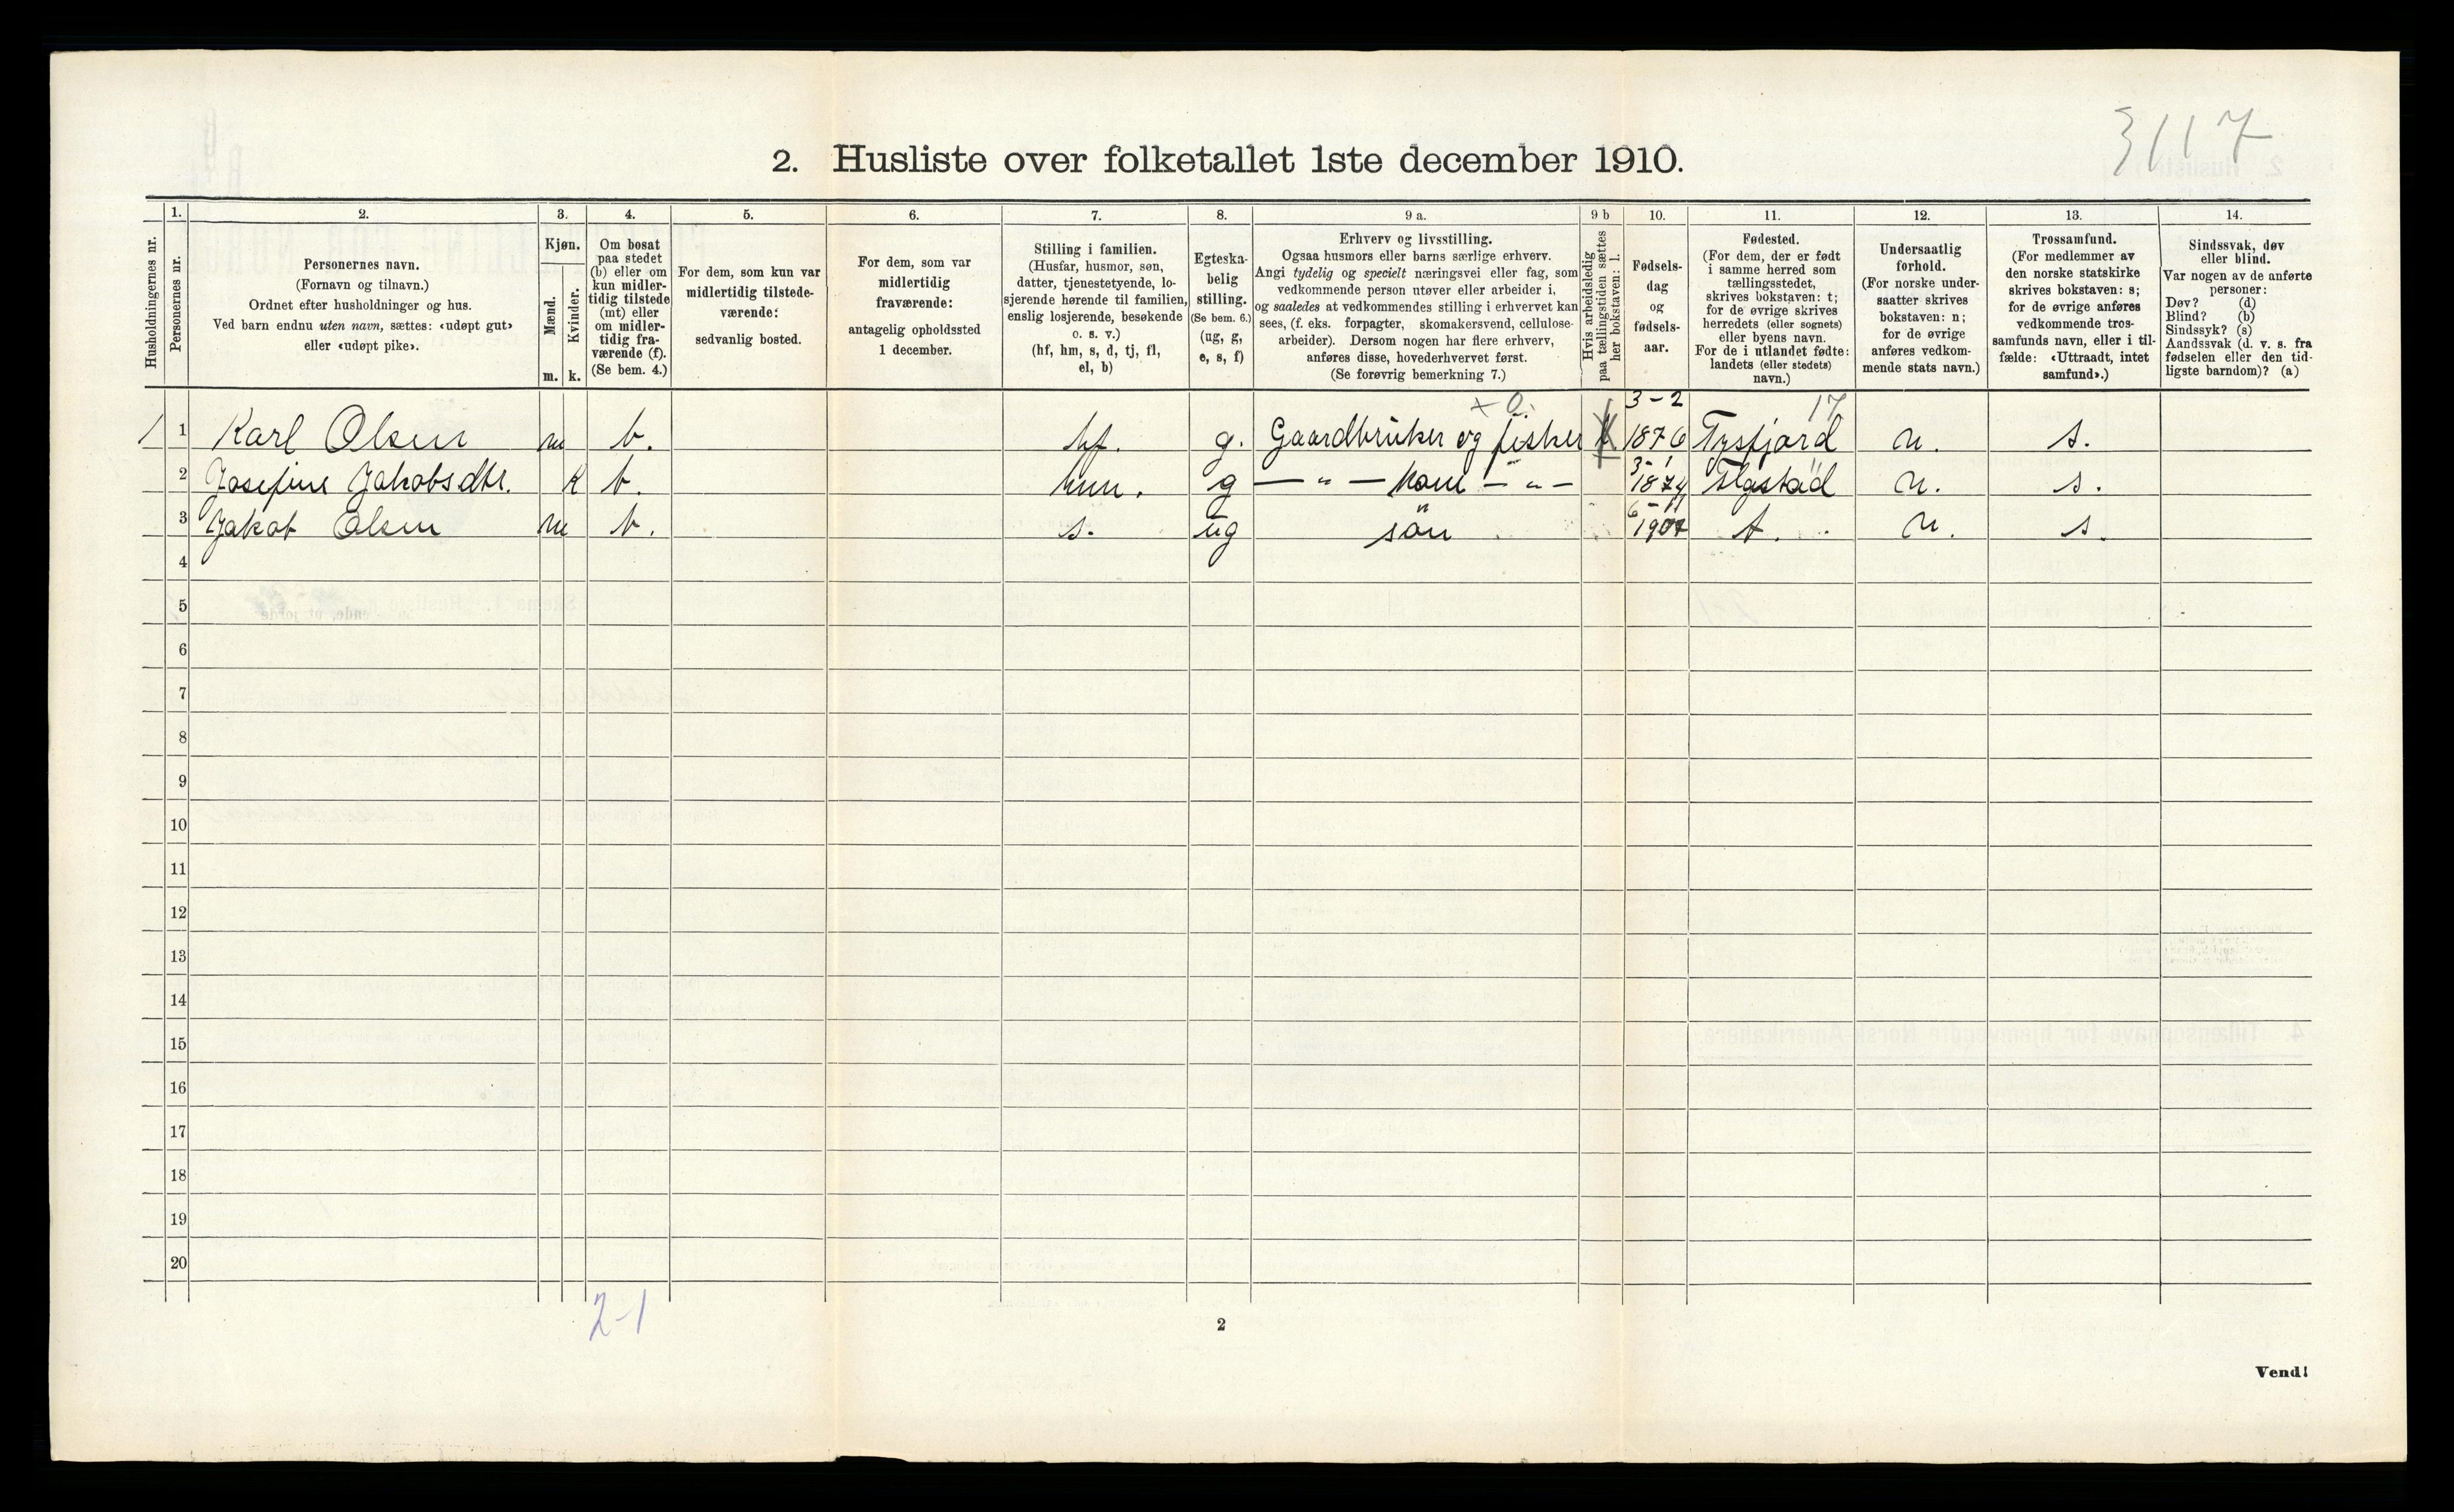 3117
2. Husliste over folketallet 1ste december 1910.
Husholdningernes nr.
1.
Personernes nr.
2.
Personernes navn.
(Fornavn og tilnavn.)
Ordnet efter husholdninger og hus.
Ved barn endnu uten navn, sættes: «udøpt gut»
eller «udøpt pike».
3.
Kjøn.
Mænd.
Kvinder.
m. k.
4.
Om bosat
paa stedet
(b) eller om
kun midler-
tidig tilstede
(mt) eller
om midler-
tidig fra-
værende (f).
(Se bem. 4.)
5.
For dem, som kun var
midlertidig tilstede-
værende:
sedvanlig bosted.
6.
For dem, som var
midlertidig
fraværende:
antagelig opholdssted
1 december.
7.
Stilling i familien.
(Husfar, husmor, søn,
datter, tjenestetyende, lo-
sjerende hørende til familien,
enslig losjerende, besøkende
o. s. v.)
(hf, hm, s, d, tj, fl,
el, b)
8.
Egteska-
belig
stilling.
(Se bem. 6.)
(ug, g,
e, s, f)
9 a.
Erhverv og livsstilling.
Ogsaa husmors eller barns særlige erhverv.
Angi tydelig og specielt næringsvei eller fag, som
vedkommende person utøver eller arbeider i,
og saaledes at vedkommendes stilling i erhvervet kan
sees, (f. eks. forpagter, skomakersvend, cellulose-
arbeider). Dersom nogen har flere erhverv,
anføres disse, hovederhvervet først.
(Se forøvrig bemerkning 7.)
9 b
Hvis arbeidsledig
paa tællingstiden sættes
her bokstaven: l.
10.
Fødsels-
dag
og
fødsels-
aar.
11.
Fødested.
(For dem, der er født
i samme herred som
tællingsstedet,
skrives bokstaven: t;
for de øvrige skrives
herredets (eller sognets)
eller byens navn.
For de i utlandet fødte:
landets (eller stedets)
navn.)
12.
Undersaatlig
forhold.
(For norske under-
saatter skrives
bokstaven: n;
for de øvrige
anføres vedkom-
mende stats navn.)
13.
Trossamfund.
(For medlemmer av
den norske statskirke
skrives bokstaven: s;
for de øvrige anføres
vedkommende tros-
samfunds navn, eller i til-
fælde: «Uttraadt, intet
samfund».)
14.
Sindssvak, døv
eller blind.
Var nogen av de anførte
personer:
Døv? (d)
Blind? (b)
Sindssyk? (s)
Aandssvak (d. v. s. fra
fødselen eller den tid-
ligste barndom)? (a)
+ 0. 3-2 17
1 1 Karl Olsen m b. hf. g. Gaardbruker og fisker 1876 Tysfjord n. s.
3-1
2 Josefine Jakobsdtr. K b. hm. g — " — kone — " — 1874 n. s.
6-11
3 Jakob Olsen m b. s. ug " sön 1907 t. n. s.
4
5
6
7
8
9
10
11
12
13
14
15
16
17
18
19
20
2-1
2
Vend!